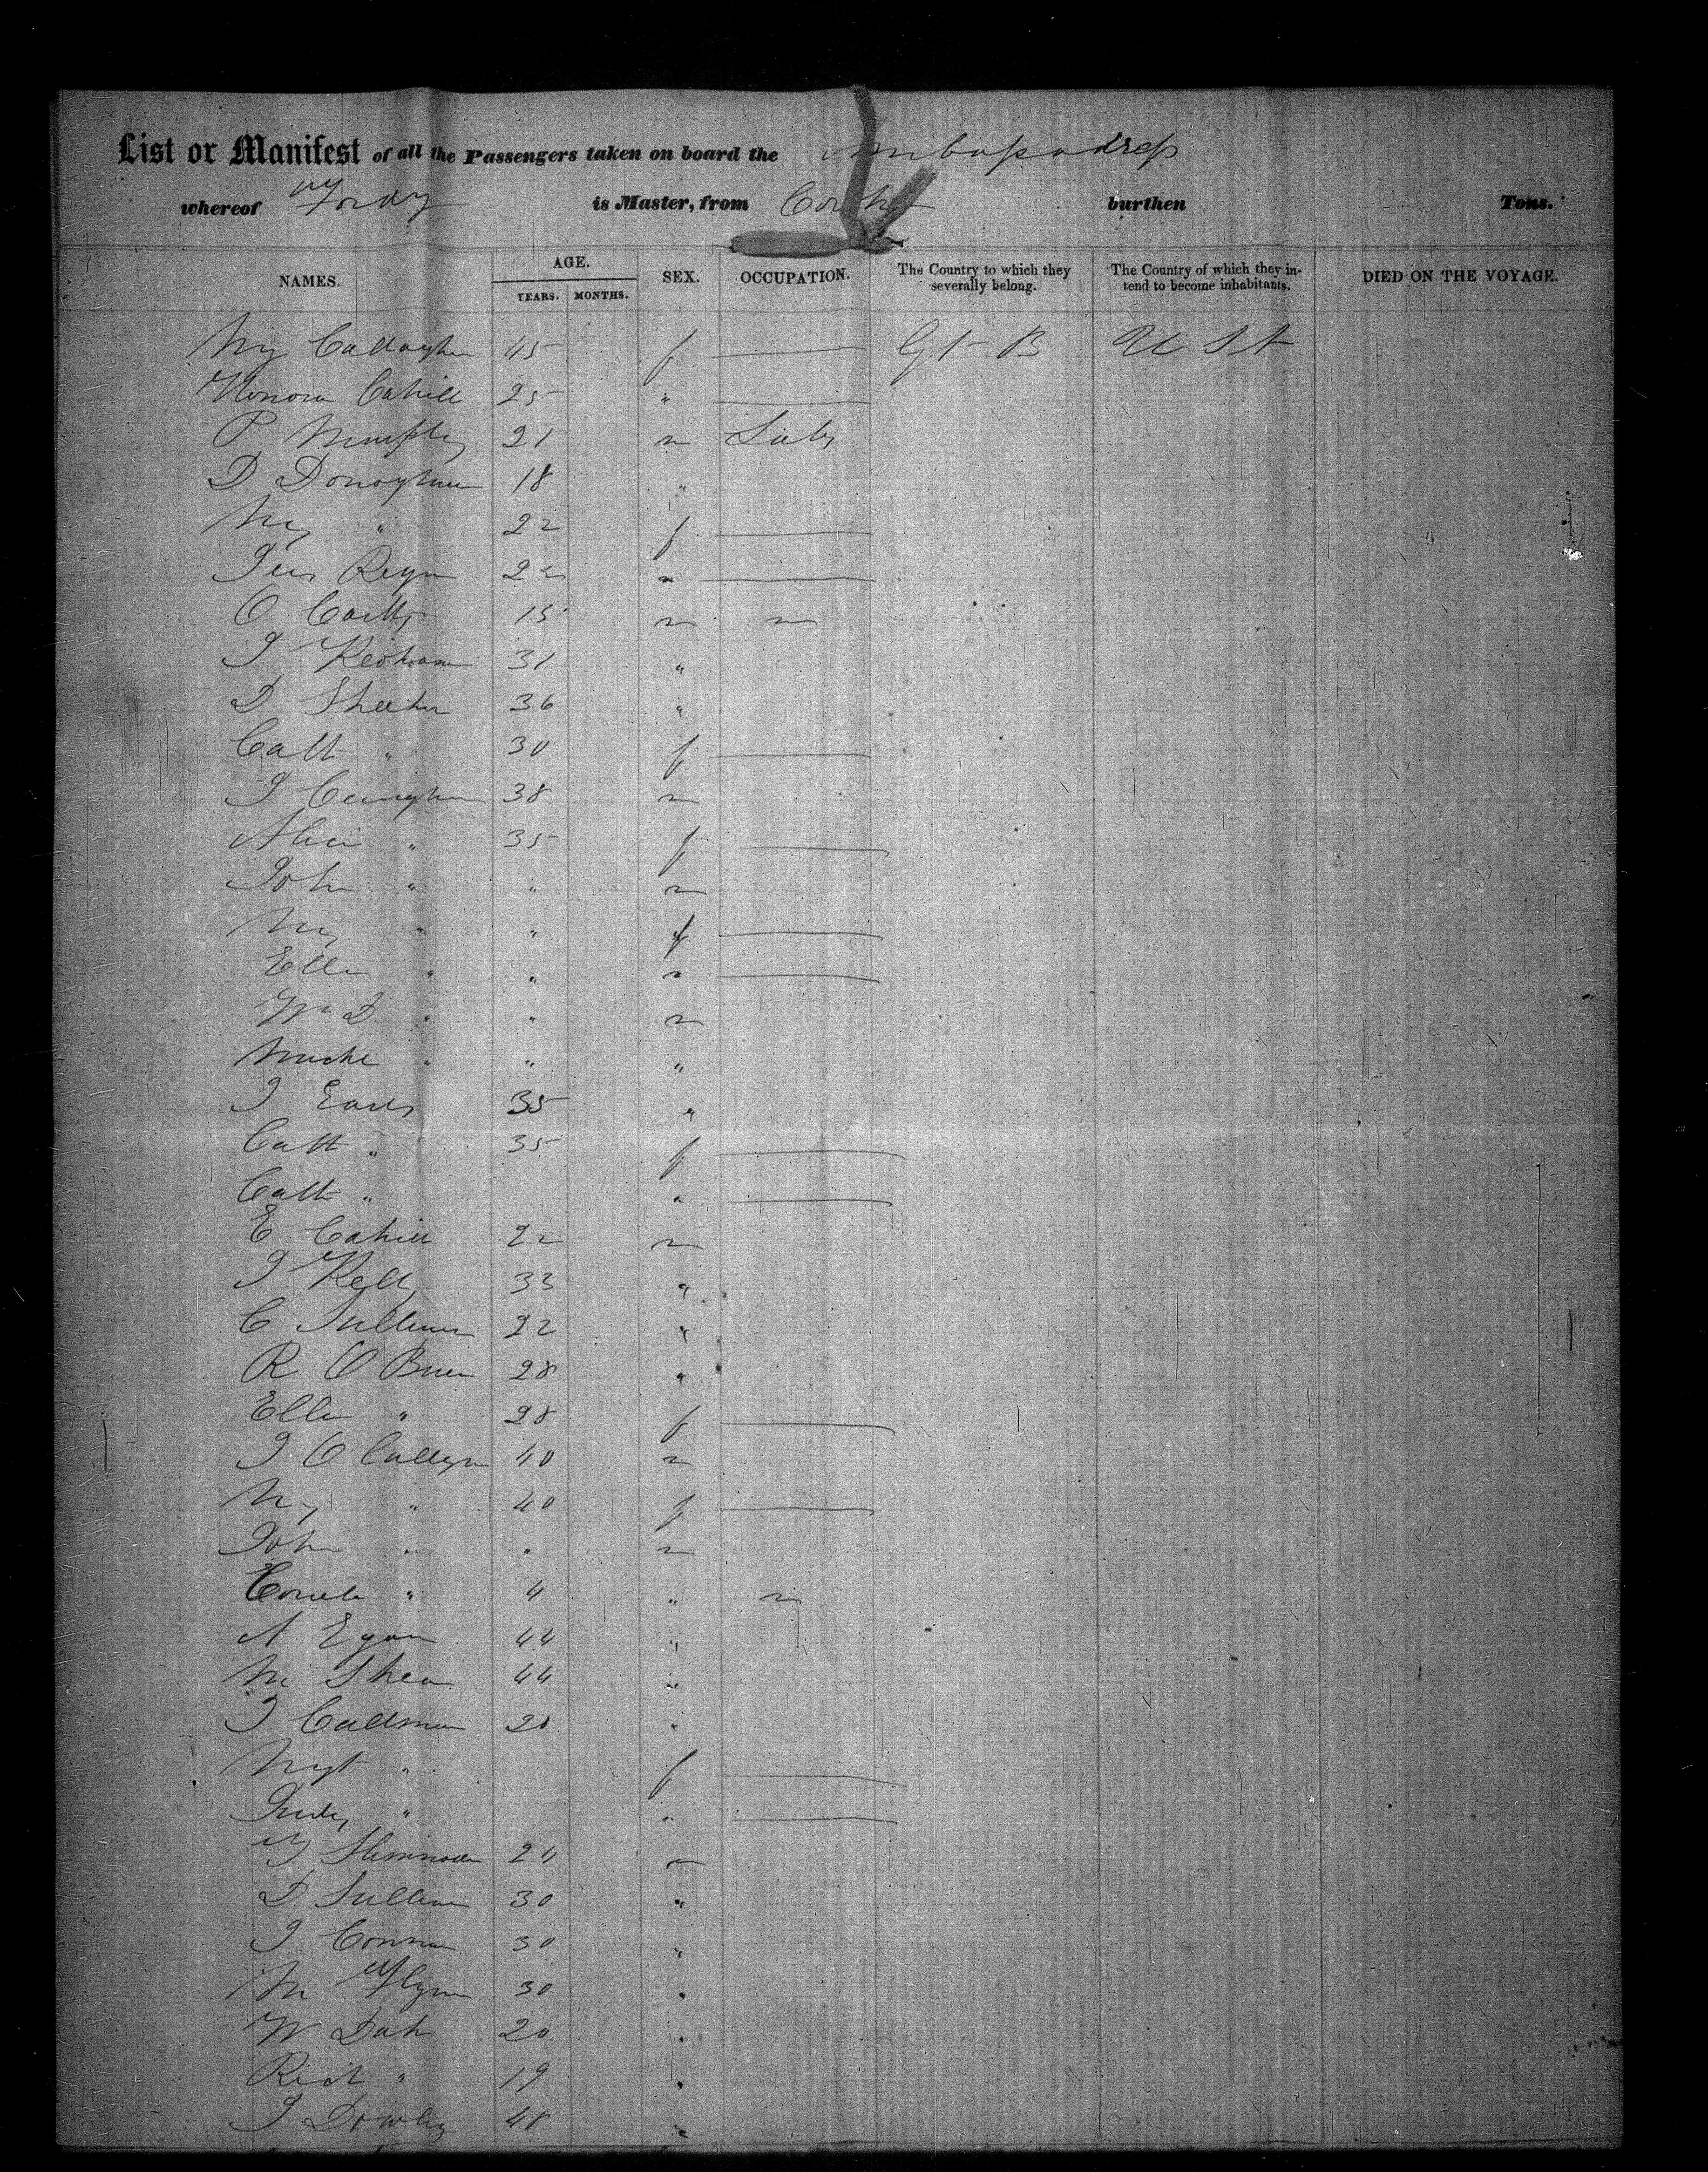 List or Manifest of all the Passengers taken on board the Ambassadress
whereof Fordy is Master, from Cork burthen Tons.
NAMES. AGE. YEARS. MONTHS. SEX. OCCUPATION. The Country to which they severally belong. The Country of which they intend to become inhabitants. DIED ON THE VOYAGE.
My Callaghan 45 f Gt B U St
Honora Cahill 25 "
P Murphy 21 m Lab
D Donoghue 18 "
My " 22 f
Ryan 22 "
C 15 m
J Keohane 31 "
D Sheehan 36 "
Cath " 30 f
J 38 m
Alice " 35 f
John " " m
My " " f
Ellen " " "
Wm D " " m
" " "
J 35 "
Cath " 35 f
Cath " "
E Cahill 22 m
J Kelly 33 "
C Sullivan 22 "
R O Brien 28 "
Ellen " 28 f
J O 40 m
My " 40 f
John " " m
" 4 "
A Egan 44 "
M Shea 44 "
J "
Mgt " f
Judy " "
24 m
D Sullivan 30 "
J 30 "
M Flynn 30 "
W 20 "
Rich " 19 "
J Dowley 48 "